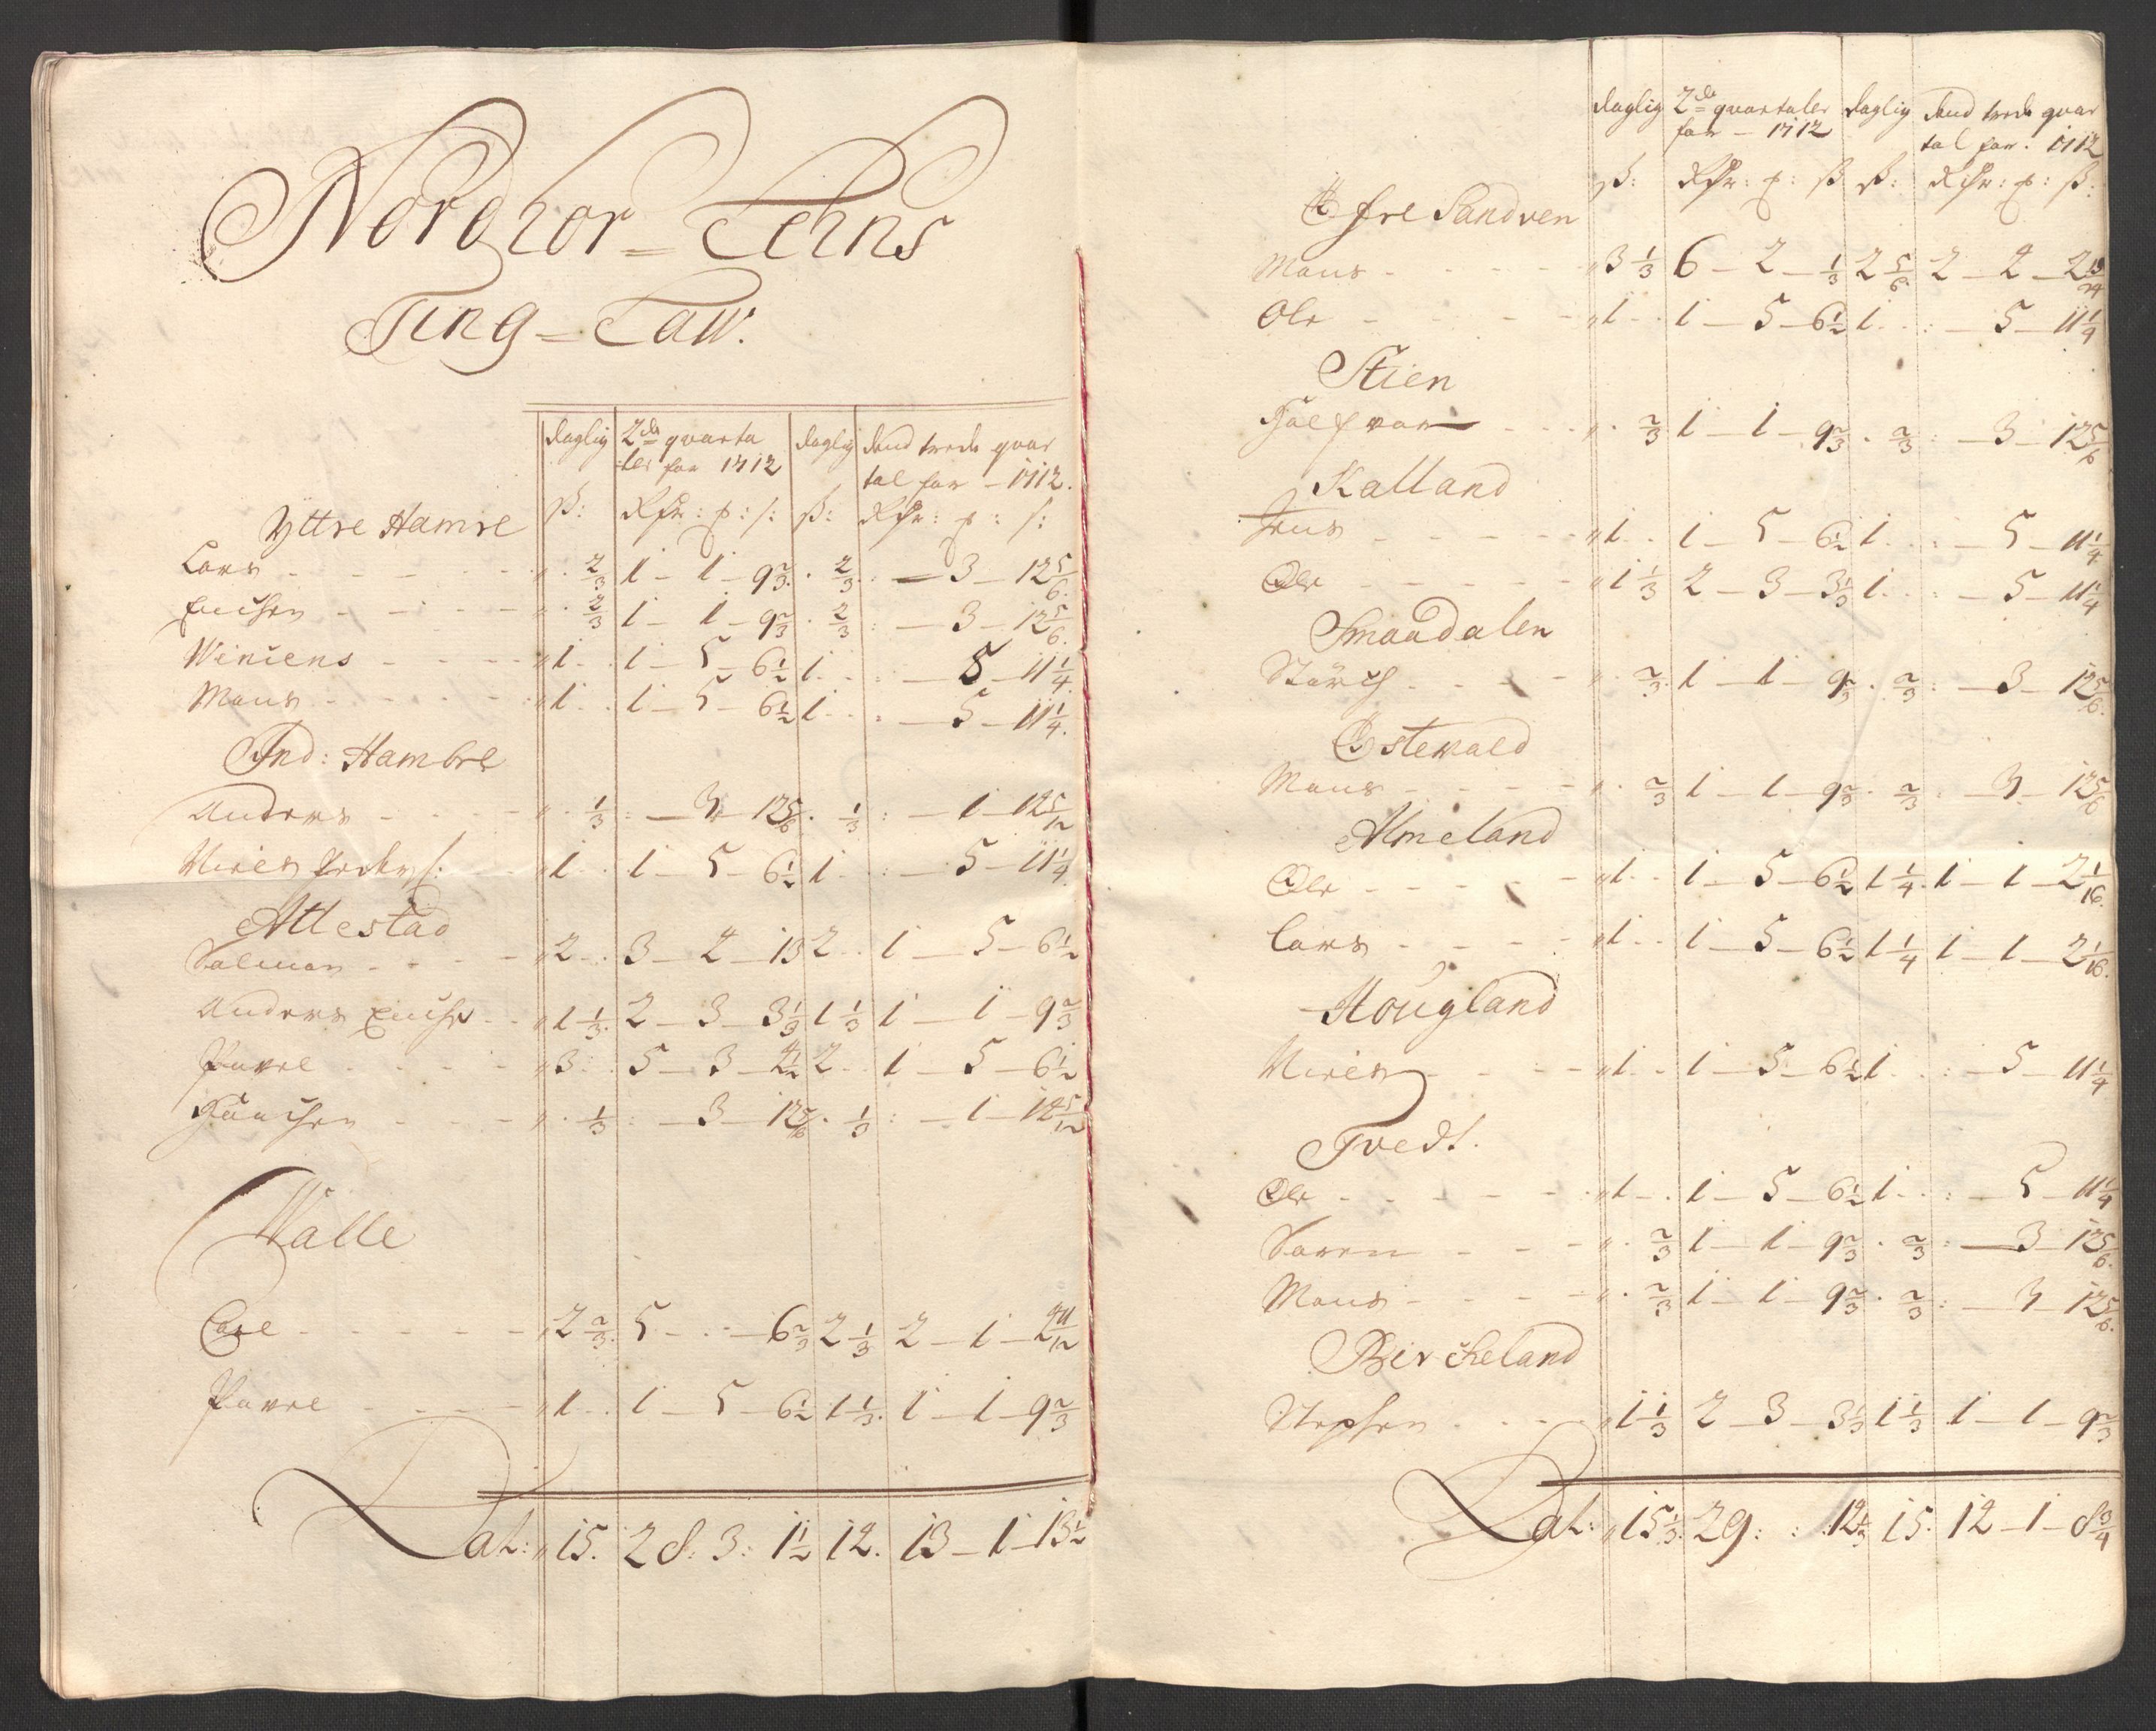 Nordhor=Lehns
Ting=Law.
daglig 2de qvarta daglig dend trede qvar
:ler for 1712 tal for - 1712.
ß: Rdr: p: s: ß: Rdr: p: s:
Yttre Hamre
Lars - - - - „ . 2/3 1 - 1 - 9 2/3 . 2/3 : - 3 - 12 5/6.
- - - - „ . 2/3 1 - 1 - 9 2/3 . 2/3 : - 3 - 12 5/6.
Winiens - - - - „ 1 . . 1 - 5 - 6 1/2 1 . . : - 5 - 11 1/4.
Mons - - - - „ 1 . . 1 - 5 - 6 1/2 1 . . : - 5 - 11 1/4.
Ind: Hambre
Anders - - - - „ . 1/3 : - 3 - 12 5/6 . 1/3 : - 1 - 14 5/12
Niels „ 1 . . 1 - 5 - 6 1/2 1 . . : - 5 - 11 1/4.
Allestad
Salmon - - - - „ 2 . . 3 - 4 - 13 2 . . 1 - 5 - 6 1/2
Anders - - „ 1 1/3 . 2 - 3 - 3 1/3 1 1/3 1 - 1 - 9 2/3
Povel - - - - „ 3 : . 5 - 3 - 4 1/2 2 . . 1 - 5 - 6 1/2
- - - „ . 1/3 : - 3 - 12 5/6 . 1/3 : - 1 - 14 5/12
Walle
- - - - - „ 2 2/3 . 5 - . - 6 2/3 2 1/3 2 - 1 - 2 11/12
Povel - - - - „ 1 . . 1 - 5 - 6 1/2 1 1/3 . 1 - 1 - 9 2/3
Lat: „ 15. 28: 3: 1 1/2 12. 13 - 1 - 13 1/2
daglig 2de qvartaler daglig dend trede qvar
for - 1712 tal for: 1712
ß: Rdr: p: ß ß: Rdr: p: ß:
Øfre Sandven
Mons - - - - „ 3 1/3 6 - 2 - 1/3 2 5/6 2 - 4 - 2 19/24
Ole - - - - „ 1 . . 1 - 5 - 6 1/2 1 . . : - 5 - 11 1/4
Stien
Halfvor - - - „ . 2/3 1 - 1 - 9 2/3 . 2/3 : - 3 - 12 5/6
Kalland
Jens - - - - - „ 1 . . 1 - 5 - 6 1/2 1 . . : - 5 - 11 1/4
Ole - - - - - „ 1 1/3 2 - 3 - 3 1/3 1 . . : - 5 - 11 1/4
Smaadalen
Størch - - - - „ . 2/3 . 1 - 1 - 9 2/3 . 2/3 : - 3 - 12 5/6.
Ostevald
Mons - - - - „ . 2/3 1 - 1 - 9 2/3 . 2/3 : - 3 - 12 5/6
Almeland
Ole - - - - - „ 1 . . 1 - 5 - 6 1/2 1 1/4 . 1 - 1 - 2 1/16.
Lars - - - - „ 1 . . 1 - 5 - 6 1/2 1 1/4 1 - 1 - 2 1/16.
Hougland
Niels - - - - „ 1 . . 1 - 5 - 6 1/2 1 . . : - 5 - 11 1/4
Tvedt.
Ole - - - - - „ 1 - . 1 - 5 - 6 1/2 1 . . : - 5 - 11 1/4
Soren - - - - „ . 2/3 1 - 1 - 9 2/3 . 2/3 : - 3 - 12 5/6.
Mons - - - - „ . 2/3 1 - 1 - 9 2/3 . 2/3 : - 3 - 12 5/6.
Bircheland
Stephen - - - „ 1 1/3 2 - 3 - 3 1/3 1 1/3 1 - 1 - 9 2/3
Lat: „ 15 1/3 . 29: : 12 1/3 15. 12 - 1 - 8 3/4